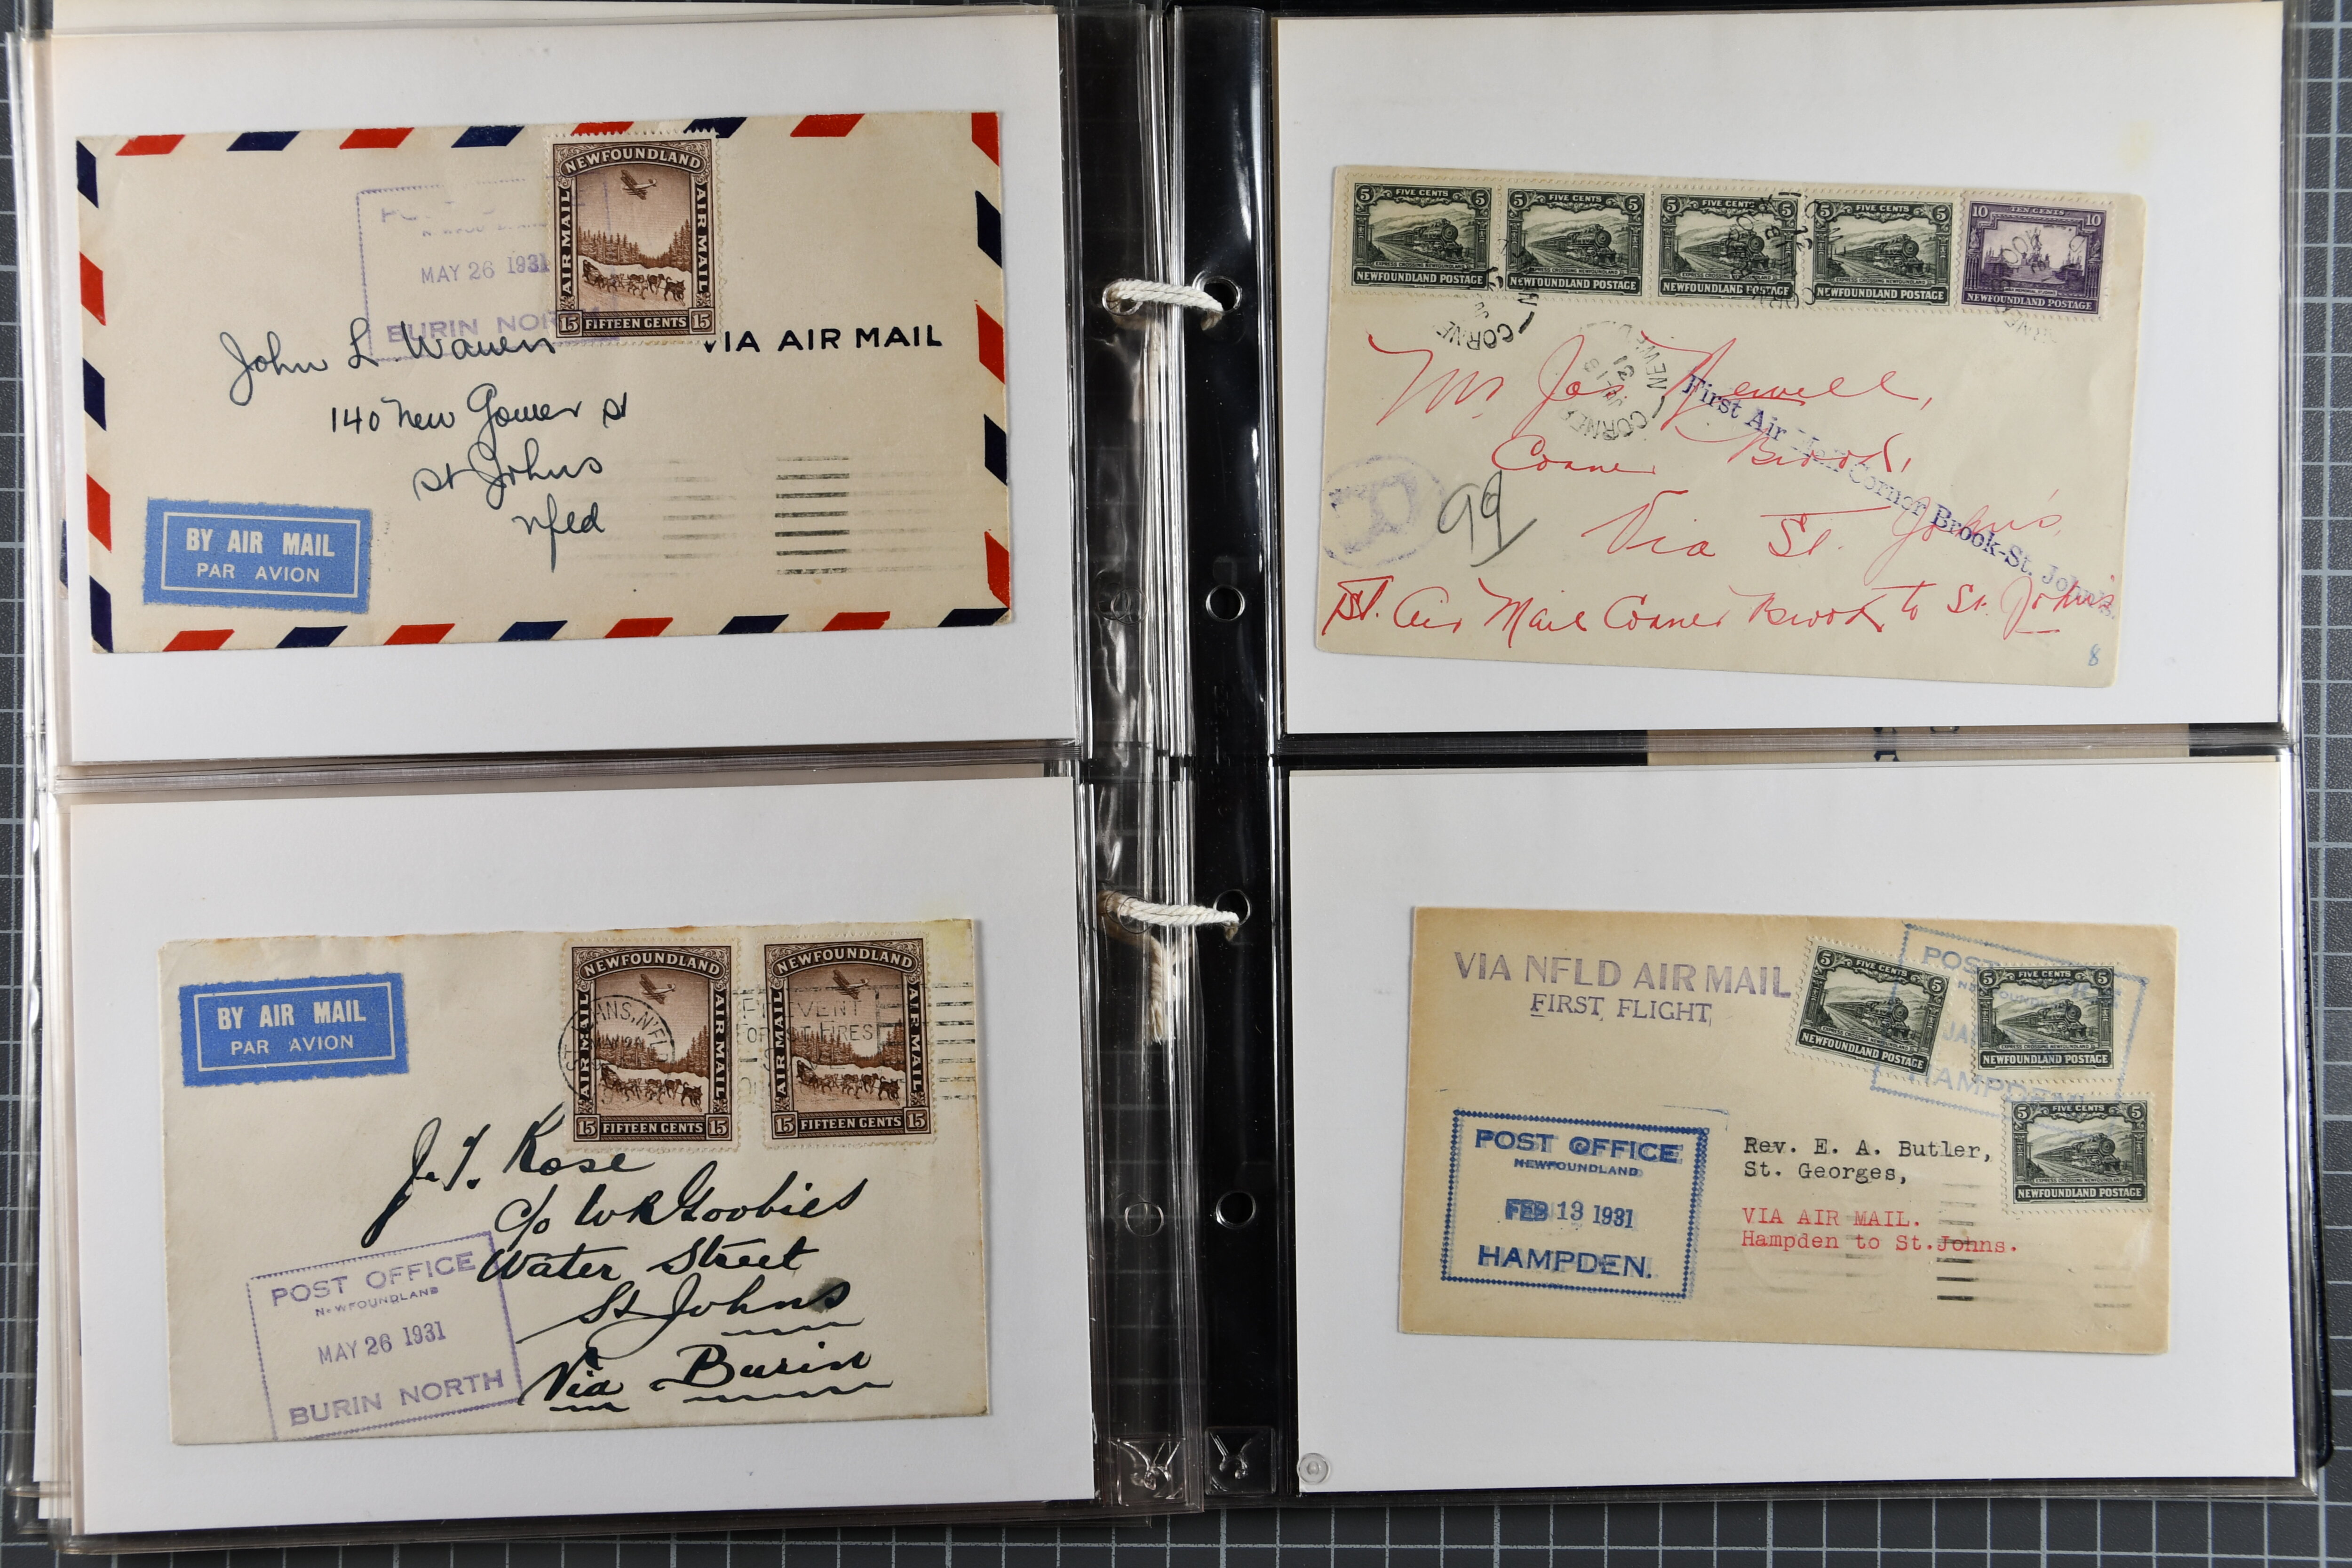 NEWFOUNDLAND
AIR MAIL
AIR MAIL
15 FIFTEEN CENTS 15
MAY 26 1931
BURIN NORTH
VIA AIR MAIL
John L.
140 New Gower St
St Johns
nfld
BY AIR MAIL
PAR AVION
5 FIVE CENTS 5
EXPRESS CROSSING NEWFOUNDLAND
NEWFOUNDLAND POSTAGE
5 FIVE CENTS 5
EXPRESS CROSSING NEWFOUNDLAND
NEWFOUNDLAND POSTAGE
5 FIVE CENTS 5
EXPRESS CROSSING NEWFOUNDLAND
NEWFOUNDLAND POSTAGE
5 FIVE CENTS 5
EXPRESS CROSSING NEWFOUNDLAND
NEWFOUNDLAND POSTAGE
10 TEN CENTS 10
NEWFOUNDLAND POSTAGE
Mr. Jos Newell,
Corner Brook,
Via St. John's,
1st. Air Mail Corner Brook to St. John's
First Air Mail Corner Brook-St. John's.
99
8
BY AIR MAIL
PAR AVION
NEWFOUNDLAND
AIR MAIL
AIR MAIL
15 FIFTEEN CENTS 15
NEWFOUNDLAND
AIR MAIL
AIR MAIL
15 FIFTEEN CENTS 15
PREVENT
FOREST FIRES
J. T. Rose
c/o W R Goobies
Water Street
St Johns
Via Burin
POST OFFICE
NEWFOUNDLAND
MAY 26 1931
BURIN NORTH
VIA NFLD AIR MAIL
FIRST FLIGHT
5 FIVE CENTS 5
EXPRESS CROSSING NEWFOUNDLAND
NEWFOUNDLAND POSTAGE
5 FIVE CENTS 5
EXPRESS CROSSING NEWFOUNDLAND
NEWFOUNDLAND POSTAGE
5 FIVE CENTS 5
EXPRESS CROSSING NEWFOUNDLAND
NEWFOUNDLAND POSTAGE
HAMPDEN
POST OFFICE
NEWFOUNDLAND
FEB 13 1931
HAMPDEN.
Rev. E. A. Butler,
St. Georges,
VIA AIR MAIL.
Hampden to St.Johns.